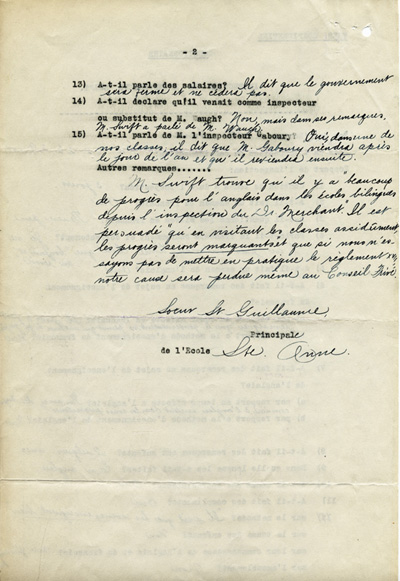 - 2 -
13) A-t-il parle des salaires? Il dit que le gouvernement
sera ferme et ne cédera pas.
14) A-t-il declare qu'il venait comme inspecteur
ou substitut de M. Waugh? Non, mais dans ses remarques,
M. Swift a parlé de M. Waugh.
15) A-t-il parle de M. l'inspecteur Gabour, Oui, dans une de
nos classes, il dit que M. Gaboury viendra après
le jour de l'an et qu'il reviendra ensuite.
Autres remarques.......
M. Swift trouve qu'il y a "beaucoup
de progrès pour l'anglais dans les écoles bilingues
depuis l'inspection du Dr Merchant". Il est
persuadé "qu'en visitant les classes assidûment,
les progrès seront marquants et que si nous n'es-
sayons pas de mettre en pratique le règlement XVII,
notre cause sera perdue même au Conseil Privé.
Soeur St Guillaume
Principale
de l'Ecole Ste Anne.